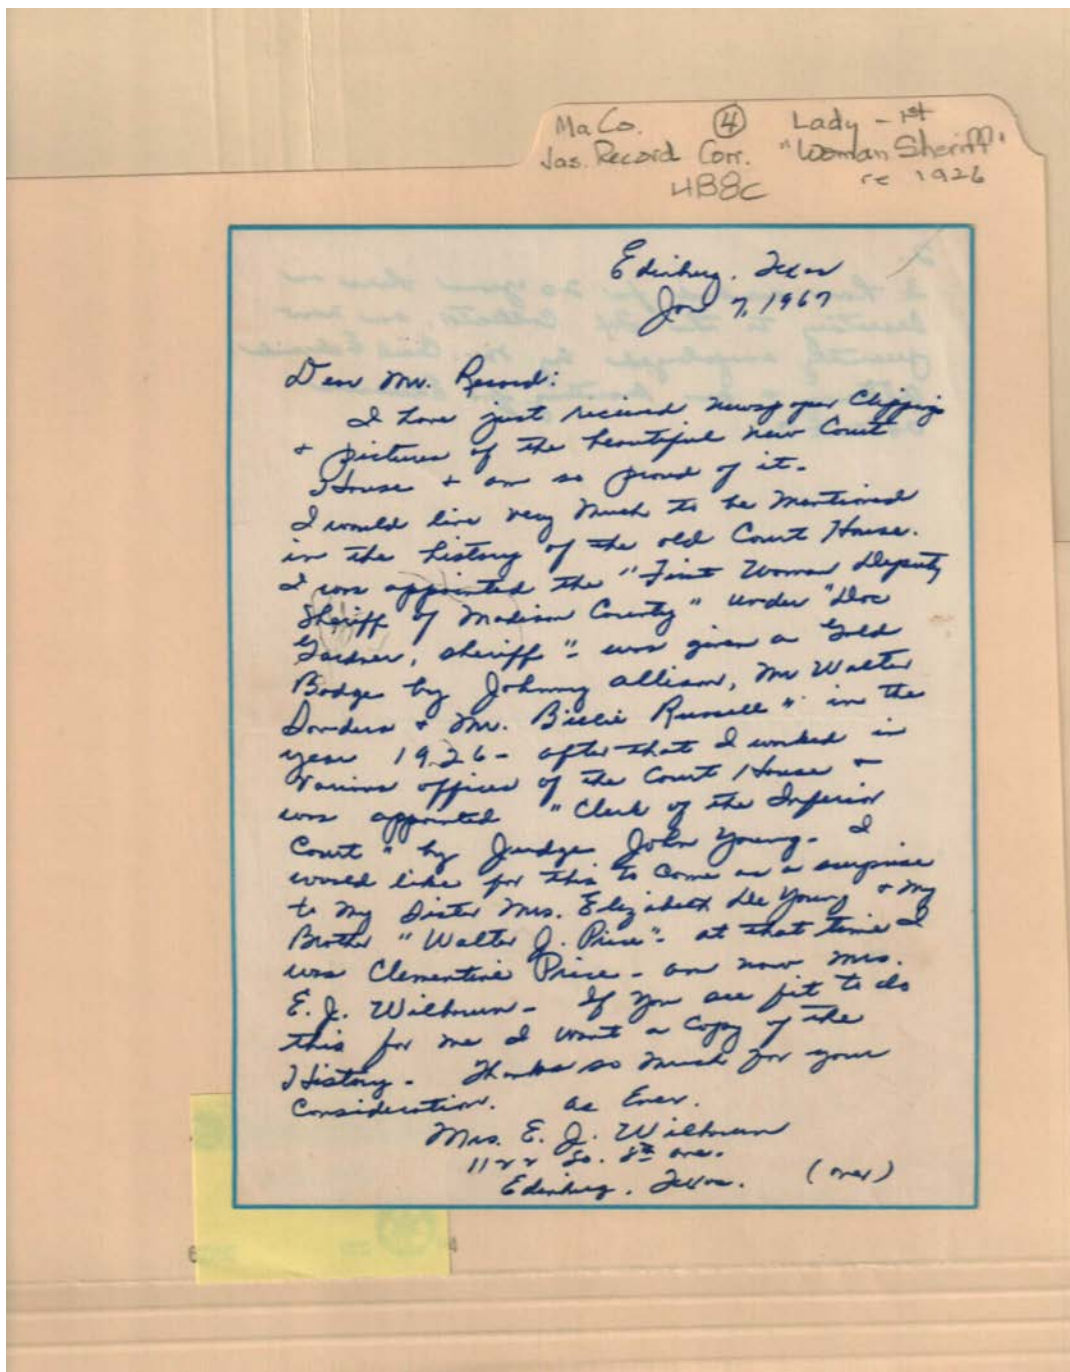 Ma Co. ④ Lady - 1st
Jas. Record Corr. "Woman Sheriff"
4B8c re 1926
Edinburg, Texas
Jan 7, 1967
Dear Mr. Record:
I have just recieved newspaper Clippings
+ pictures of the beautiful new Court
House + am so proud of it.
I would live very much to be mentioned
in the history of the old Court House.
I was appointed the "First Woman Deputy
Sheriff of Madison County" under "Doc
Gardner, sheriff" - was given a Gold
Badge by Johnny Allison, Mr Walter
+ Mr. Billie Russell" in the
year 1926 - after that I worked in
Various offices of the Court House +
was appointed "Clerk of the Inferior
Court" by Judge John Young. I
would like for this to come as a surprise
to my Sister Mrs. Elizabeth De Young + my
Brother "Walter J. Price" - at that time I
was Clementine Price - am now Mrs.
E. J. Wilbourn - If you see fit to do
this for me I want a Copy of the
History. Thanks so much for your
Consideration. As Ever.
Mrs. E. J. Wilbourn
1122 So. 8th ave.
Edinburg, Texas. (over)